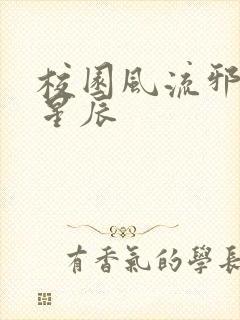 校園風流邪
星辰
有香氣的學長